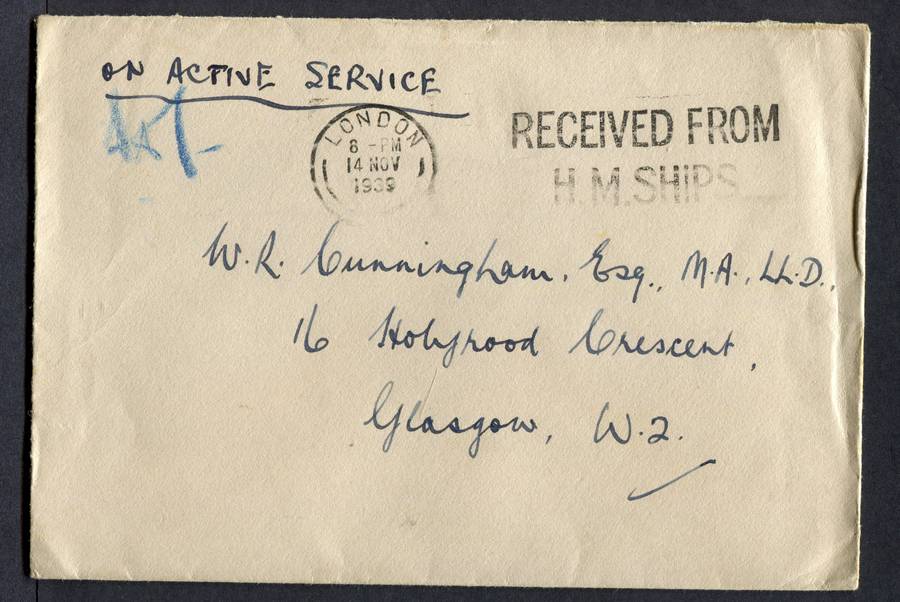 ON ACTIVE SERVICE
LONDON
8 - PM
14 NOV
1939
RECEIVED FROM
H.M.SHIPS
W.R. Cunningham, Esq., M.A., LL.D.,
16 Holyrood Crescent,
Glasgow, W.2.